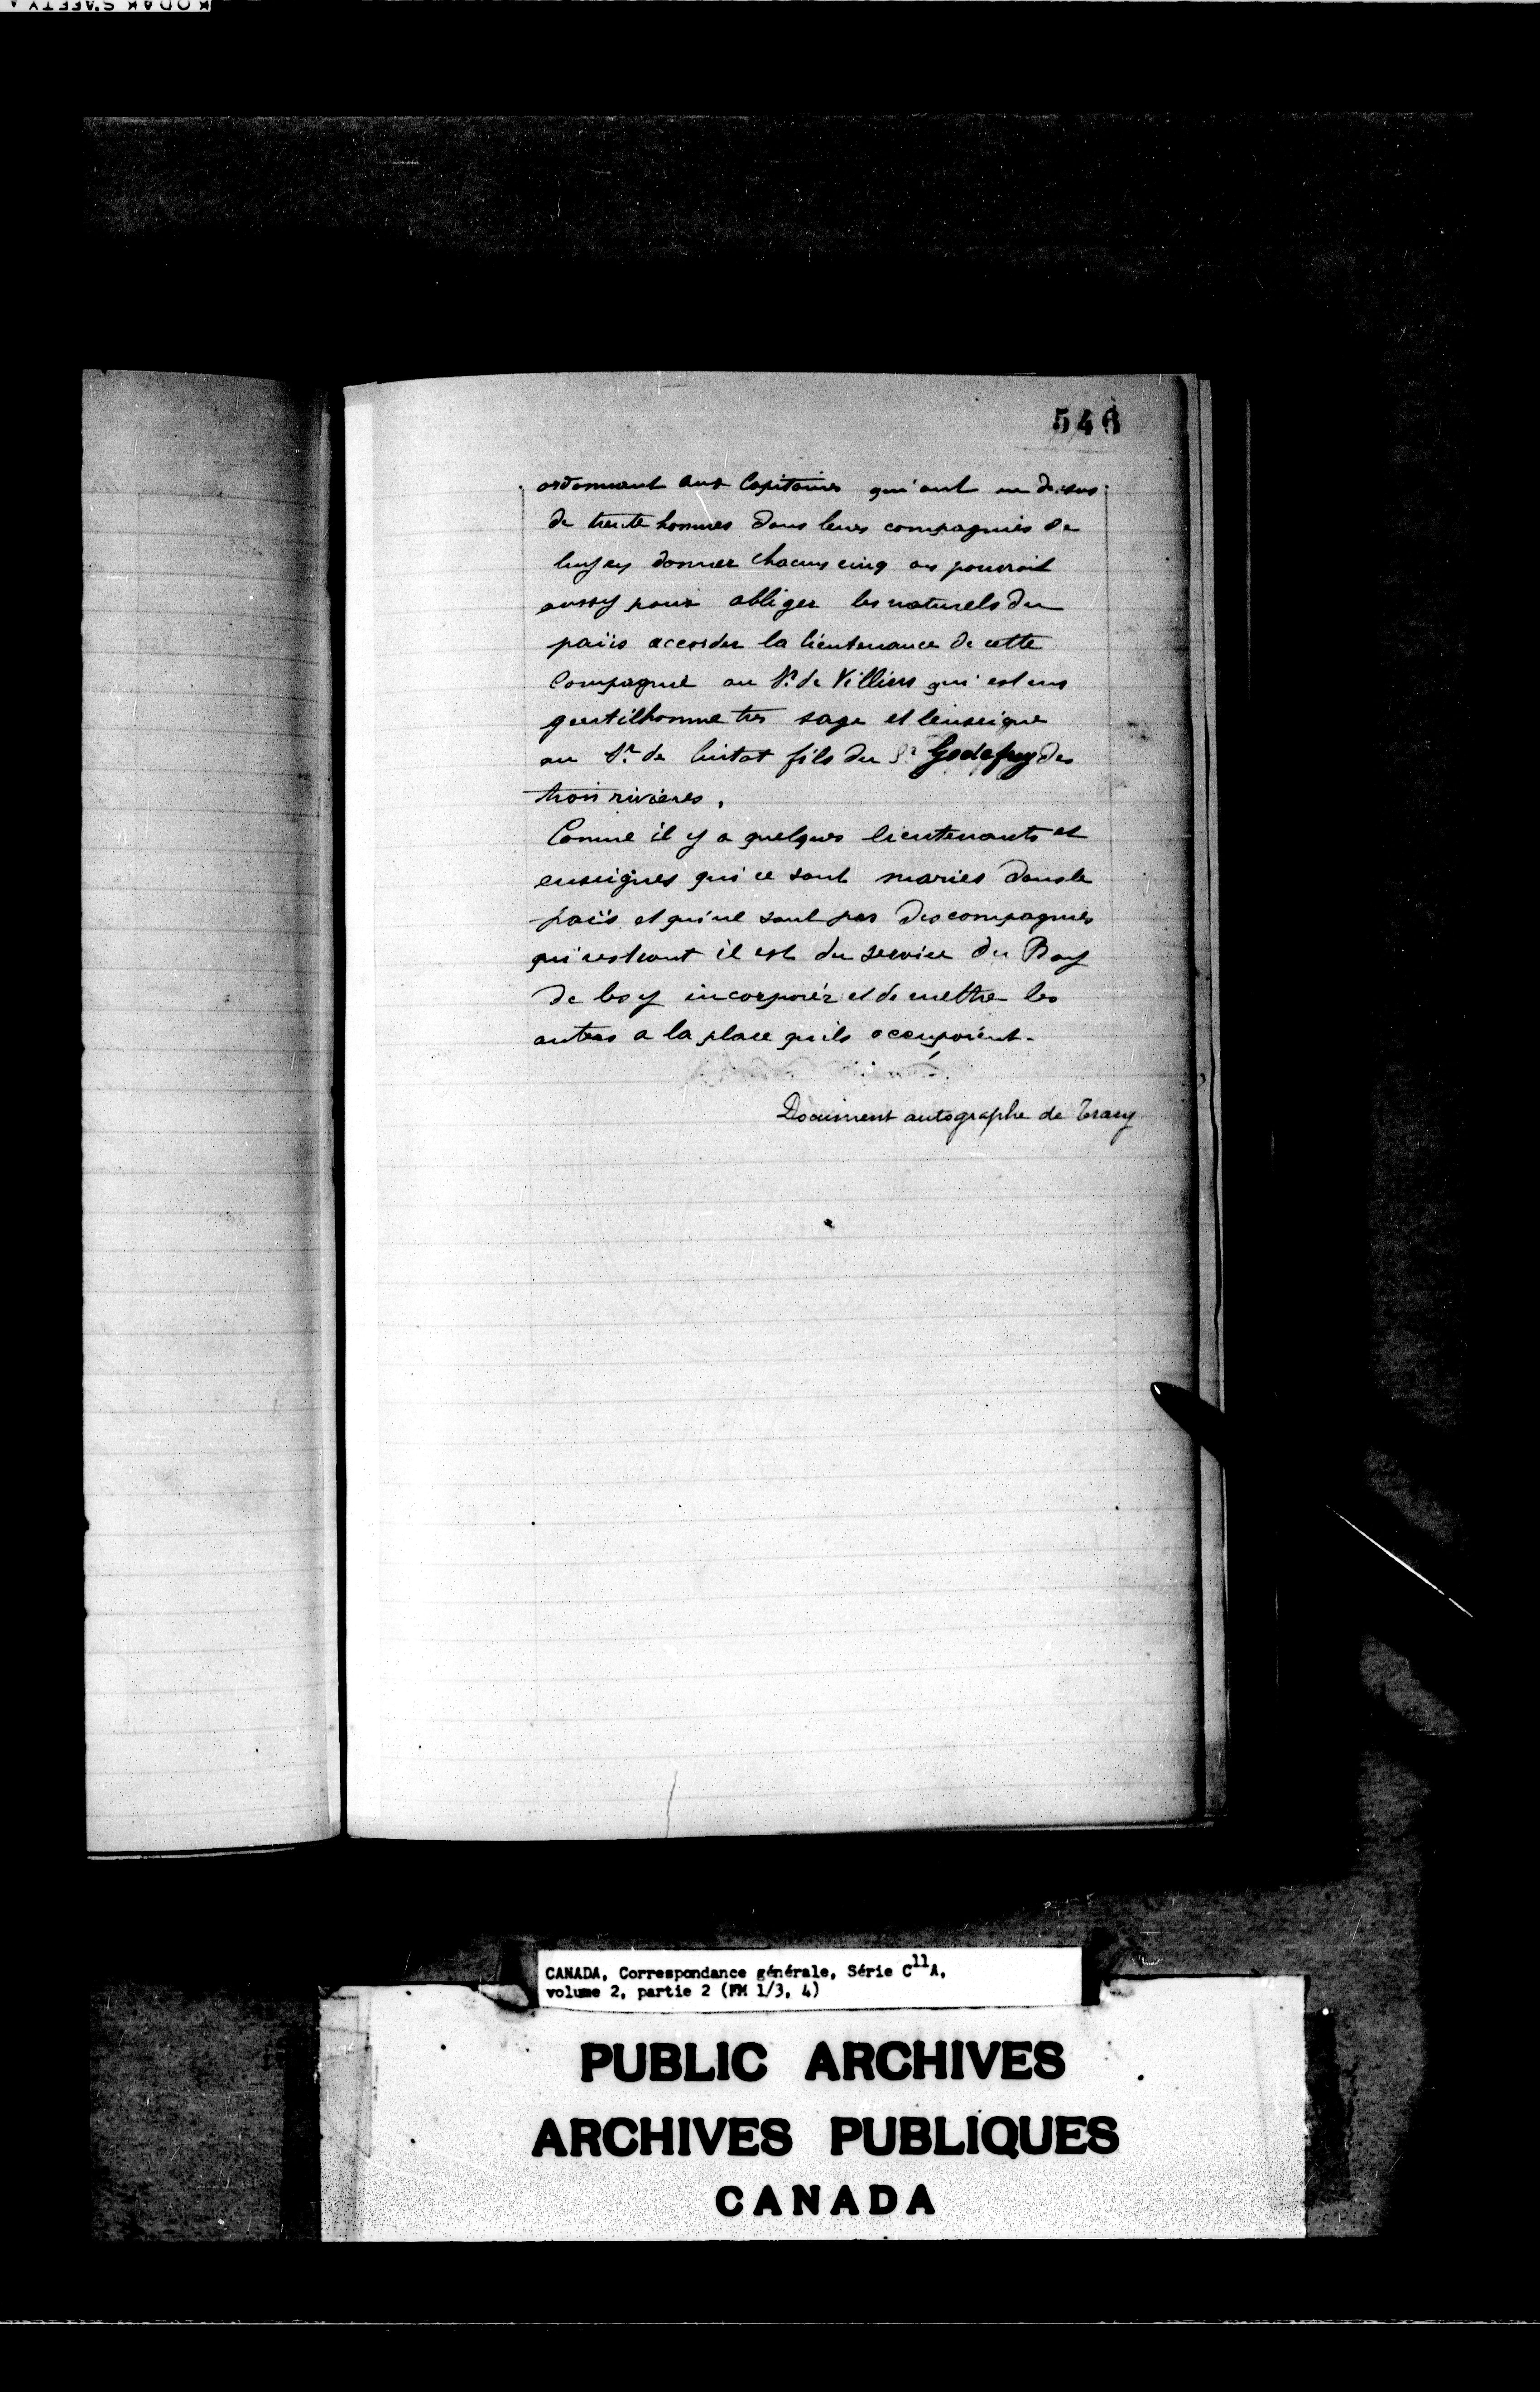 546
ordonnant aux Capitaines qui ont au dessus
de trente hommes dans leurs compagnies de
luy en donner chacun cinq on pourroit
aussy pour obliger les naturels du
païis accorder la lieutenance de cette
Compagnie au Sr. de Villiers qui est un
gentilhomme tres sage et lenseigne
au Sr. de lintot fils du Sr Godefroy des
trois rivieres.
Comme il y a quelques lieutenants et
enseignes qui ce sont maries dans le
païis et qui ne sont pas des compagnies
qui restront il est du service du Roy
de les y incorporér et de mettre les
autres a la place quils occupoient.
Document autographe de Tracy
CANADA, Correspondance générale, Série C11A,
volume 2, partie 2 (FM 1/3, 4)
PUBLIC ARCHIVES
ARCHIVES PUBLIQUES
CANADA